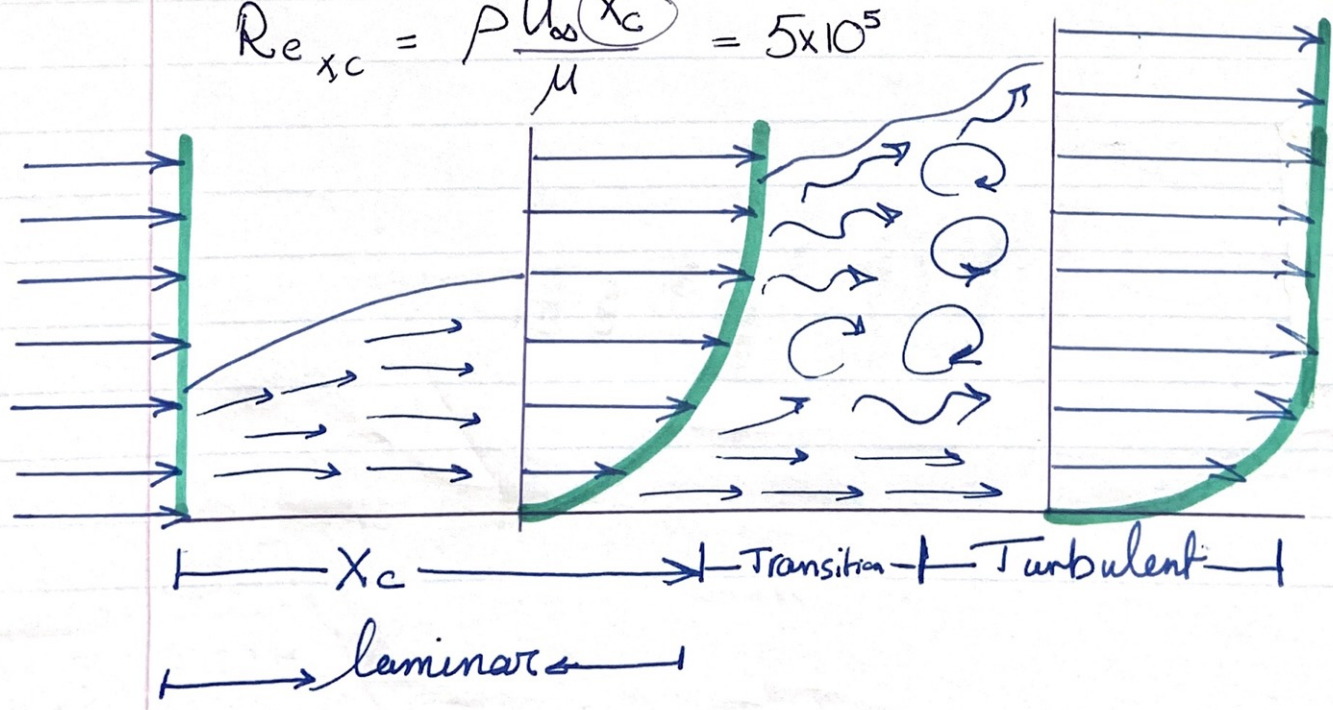 Re x,c = ρ U∞ xc / μ = 5x10⁵
Xc
Transition
Turbulent
laminar